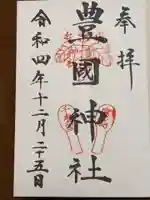 奉拝
豊國神社
令和四年十二月二十五日